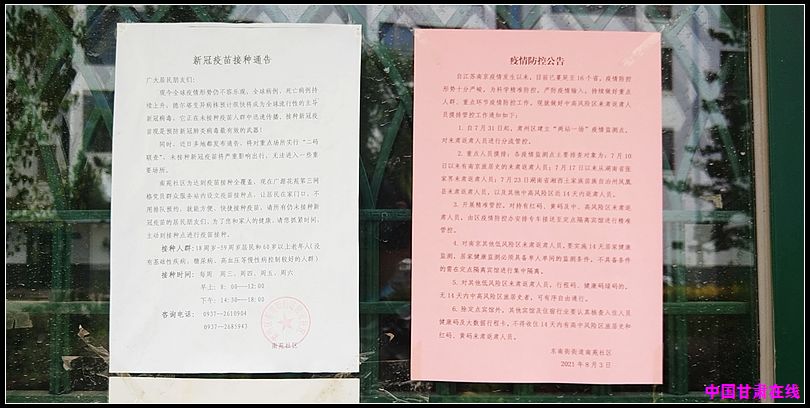 新冠疫苗接种通告
广大居民朋友们：
现今全球疫情形势仍不容乐观，全球病例、死亡病例持续上升，德尔塔变异病株预计很快将成为全球流行性的主导新冠病毒，它正在未接种疫苗人群中迅速传播，接种新冠疫苗现是预防新冠肺炎病毒最有效的武器！
同时，近日多地都发布通告，将对重点场所实行“二码联查”，未接种新冠疫苗将严重影响出行，无法进入一些重要场所。
南苑社区为达到疫苗接种全覆盖，现在广源花苑第三网格党员群众服务站内设立疫苗接种点，让居民在家门口、不用排队预约，就能方便、快捷接种疫苗，请所有仍未接种新冠疫苗的居民朋友们，为了您和家人的健康，请您抓紧时间，主动到接种点进行疫苗接种。
接种人群：18周岁-59周岁居民和60岁以上老年人（没有基础性疾病，糖尿病、高血压等慢性病控制较好的人群）
接种时间：每周一、周三、周四、周五、周六
早上：8：00——12：00
下午：14：30——18：00
咨询电话：0937-2610904
0937-2685943
南苑社区
疫情防控公告
自江苏南京疫情发生以来，目前已蔓延至16个省，疫情防控形势十分严峻，为科学精准防控，严防疫情输入，持续做好重点人群、重点环节疫情防控工作，现就做好中高风险区来肃返肃人员摸排管控工作通知如下：
1.自7月31日起，肃州区建立“两站一场”疫情监测点，对来肃返肃人员进行分流管控。
2.重点人员摸排：各疫情监测点主要排查对象为：7月10日以来有南京旅居史的来肃返肃人员；7月17日以来从湖南省张家界来肃返肃人员；7月23日湖南省湘西土家族苗族自治州凤凰县来肃返肃人员，以及其他中高风险区近14天内返肃人员。
3.开展精准管控。对持有红码、黄码及中、高风险区来肃返肃人员，由区疫情防控办安排专车接送至定点隔离宾馆进行精准管控。
4.对南京其他低风险区来肃返肃人员，要实施14天居家健康监测，居家健康监测必须具备单人单间的监测条件，不具备条件的需在定点隔离宾馆进行集中隔离。
5.对其他低风险区来肃返肃人员，行程码、健康码绿码的，无14天内中高风险区旅居史者，可有序自由通行。
6.除定点宾馆外，其他宾馆及住宿行业要认真核查入住人员健康码及大数据行程卡，不得收住14天内有高中风险区旅居史和红码、黄码来肃返肃人员。
东南街街道南苑社区
2021年8月3日
中国甘肃在线